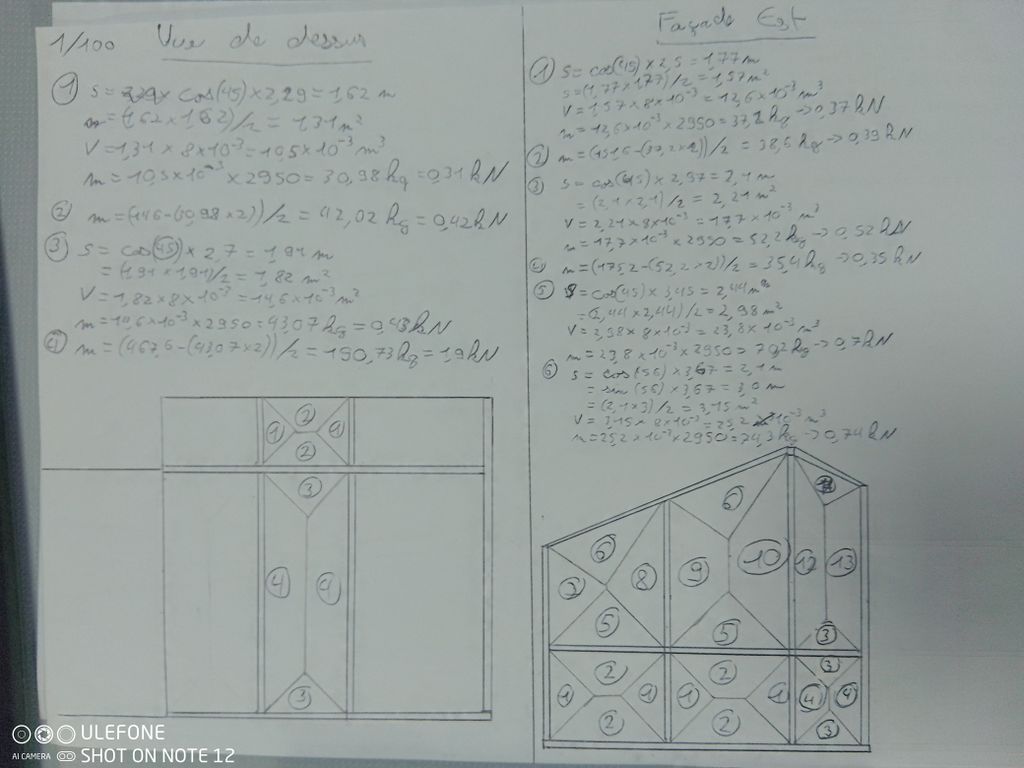 1/100 Vue de dessus
① S = cos(45) × 2,29 = 1,62 m
m = (1,62 × 1,62)/2 = 1,31 m²
V = 1,31 × 8×10⁻³ = 10,5×10⁻³ m³
m = 10,5×10⁻³ × 2950 = 30,98 kg = 0,31 kN
② m = (146-(30,98 × 2))/2 = 42,02 kg = 0,42 kN
③ S = cos(45) × 2,7 = 1,91 m
= (1,91 × 1,91)/2 = 1,82 m²
V = 1,82 × 8×10⁻³ = 14,6×10⁻³ m³
m = 14,6×10⁻³ × 2950 = 43,07 kg = 0,43 kN
④ m = (467,6-(43,07×2))/2 = 190,73 kg = 1,9 kN
② ① ① ② ③ ④ ④ ③
Façade Est
① S = cos(45) × 2,5 = 1,77 m
S = (1,77 × 1,77)/2 = 1,57 m²
V = 1,57 × 8×10⁻³ = 12,6×10⁻³ m³
m = 12,6×10⁻³ × 2950 = 37,2 kg → 0,37 kN
② m = (151,6-(37,2×2))/2 = 38,6 kg → 0,39 kN
③ S = cos(45) × 2,97 = 2,1 m
= (2,1 × 2,1)/2 = 2,21 m²
V = 2,21 × 8×10⁻³ = 17,7×10⁻³ m³
m = 17,7×10⁻³ × 2950 = 52,2 kg → 0,52 kN
④ m = (175,2-(52,2×2))/2 = 35,4 kg → 0,35 kN
⑤ S = cos(45) × 3,45 = 2,44 m
= (2,44 × 2,44)/2 = 2,98 m²
V = 2,98 × 8×10⁻³ = 23,8×10⁻³ m³
m = 23,8×10⁻³ × 2950 = 70,2 kg → 0,7 kN
⑥ S = cos(56) × 3,67 = 2,1 m
= sin(56) × 3,67 = 3,0 m
= (2,1×3)/2 = 3,15 m²
V = 3,15 × 8×10⁻³ = 25,2×10⁻³ m³
m = 25,2×10⁻³ × 2950 = 74,3 kg → 0,74 kN
⑥ ⑥ ⑧ ⑨ ⑩ ⑫ ⑬
⑤ ⑤ ③
② ② ③
① ① ① ① ④ ④
② ② ③
ULEFONE
AI CAMERA SHOT ON NOTE 12